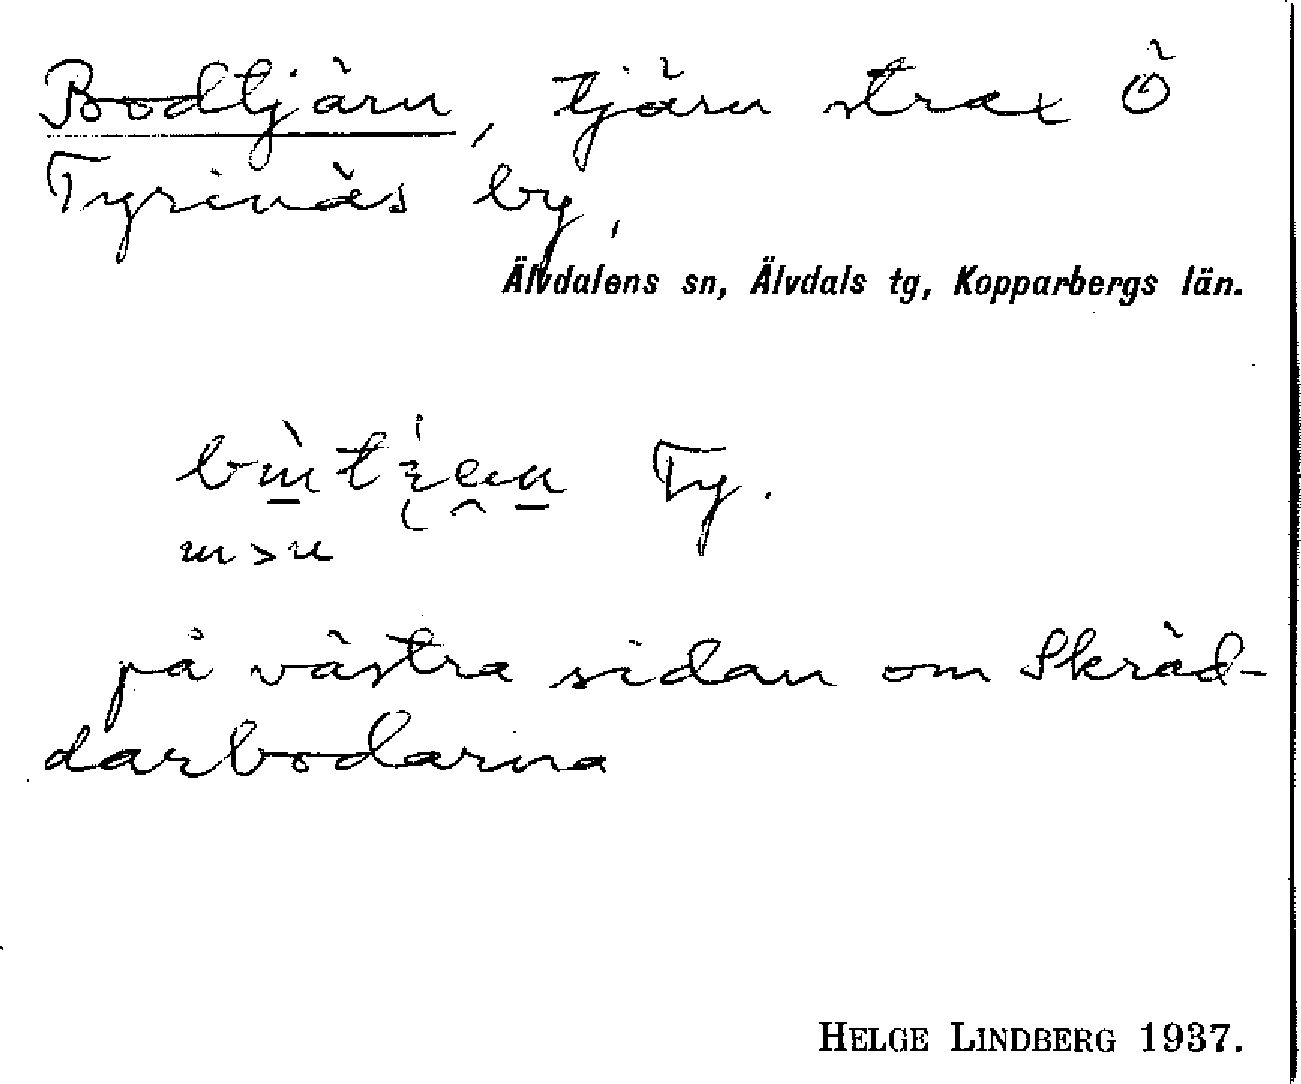 Bodtjärn, tjärn strax Ö
Tyrinäs by,
Älvdalens sn, Älvdals tg, Kopparbergs län.
Ty.
m > u
på västra sidan om Skräd-
darbodarna
HELGE LINDBERG 1937.